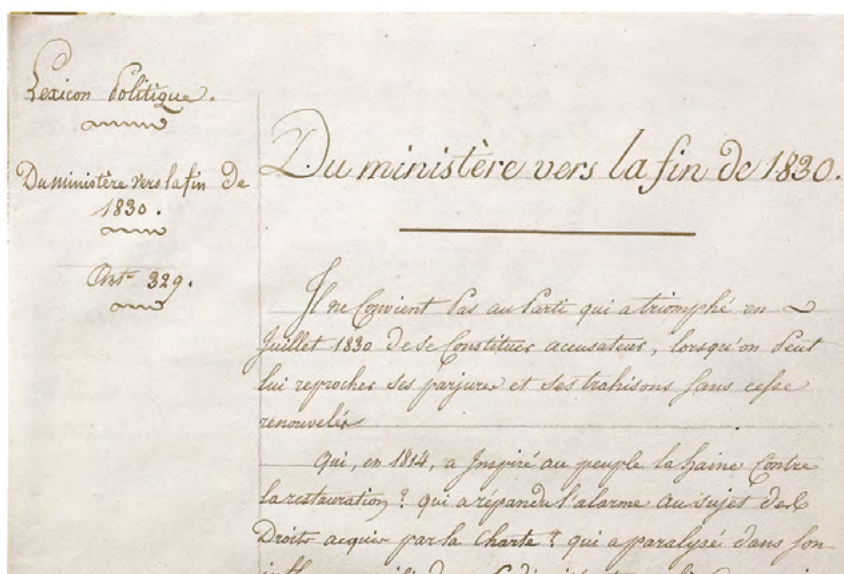 Lexicon Politique.
Du ministère vers la fin de
1830.
Art. 329.
Du ministère vers la fin de 1830.
Il ne Convient Pas au Parti qui a triomphé en
Juillet 1830 de se Constituer accusateur, lorsqu'on Peut
lui reprocher ses parjures et ses trahisons sans cesse
renouvelés
Qui, en 1814, a Inspiré au peuple la haine Contre
la restauration? qui a répandu l'alarme au sujet des
Droits acquis par la Charte? qui a paralysé dans son